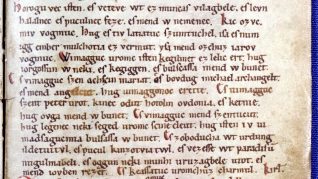 horogu vec isten. es veteve wt ez muncas vilagbele. es levn
halalnec es puculnec feze. es mend w nemenec. Kic ozvc.
miv vogmuc. Hug es tiv latiatuv szumtuchel. isa es num
igg ember mulchotia ez vermut. ysa mend ozchuz iarov
vogmuc. Wimagguc uromc isten kegilmet ez lelic ert. hug
iorgossun w neki. es kegiggen. es bulsassa mend w bunet.
Es vimagguc szen achscin mariat. es bovdug michael archangelt.
es mend angelcut. hug uimaggonoc erette. Es uimagguc
szent peter urot. kinec odut hotolm ovdonia. es ketnie.
hug ovga mend w bunet. Es vimagguc mend szentucut.
hug legenec neki seged uromc scine eleut. hug isten iv ui
madsagucmia bulsassa w bunet. Es zoboducha wt urdung
ildetuitul. es pucul kinzotviatwl. es vezesse wt paradisu
nugulmabeli. es oggun neki munhi uruzagbele utot. es
mend iovben rezet. Es keassatuc uromchuz charmul. Kirl.